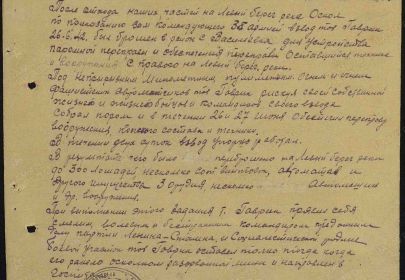 После отхода наших частей на левый берег реки Оскол
по приказанию зам командующего 38 армией взвод тов Гаврик
26.6.42, был брошен в район с Васильевка для устройства
паромной переправы и обеспечения переправы оставшейся техники
с правого на левый берег реки.
Под непрерывным минометным пулеметным огнем и огнем
фашистских автоматчиков тов Гаврик рискуя своей собственной
жизнью и жизнью бойцов и командиров своего взвода
Собрал паром и в течении 26 и 27 июня обеспечил переправу
вооружения, конского состава и техники.
В течении двух суток взвод упорно работал.
В результате чего было переброшено на левый берег реки
до 300 лошадей несколько сот винтовок, автоматов и
другого имущества 3 орудия несколько автомашин
и др. вооружения.
При выполнении этого задания т. Гаврик проявил себя
смелым, волевым и бесстрашным командиром преданным
делу партии Ленина-Сталина, и социалистической родине
Боевой участок тов Гаврик оставил только тогда когда
его ранило осколком разорвавшейся мины и направлен в
Госпиталь